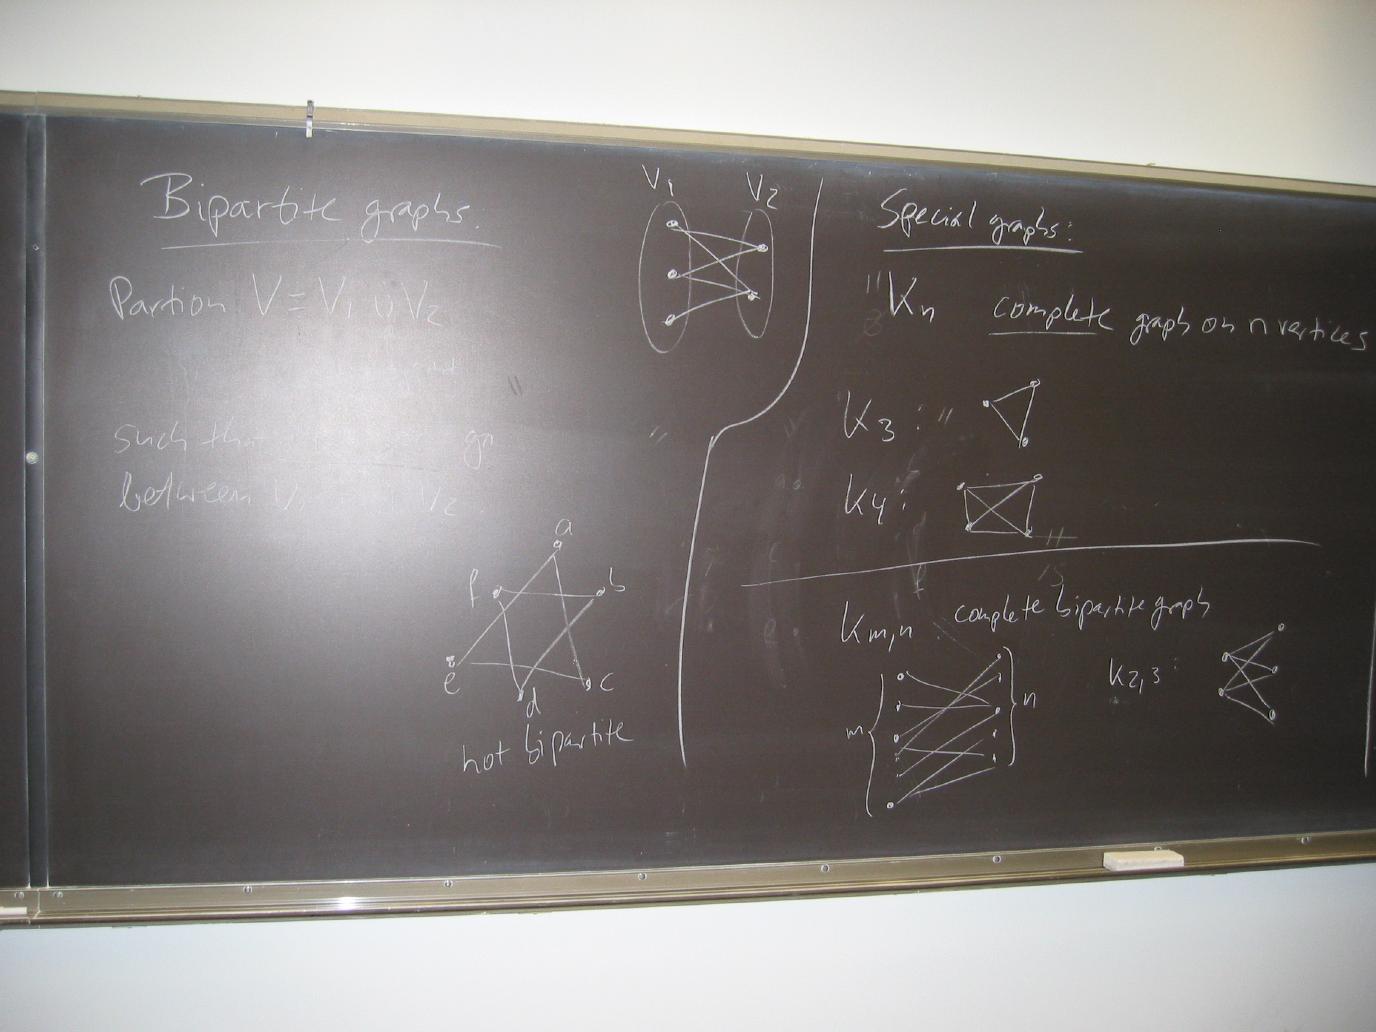 Bipartite graphs:
Partion V = V1 ∪ V2
such that go
between V V2.
V1 V2
a
f b
e c
d
not bipartite
Special graphs:
Kn complete graph on n vertices
K3:
K4:
Km,n complete bipartite graph
m n
K2,3: